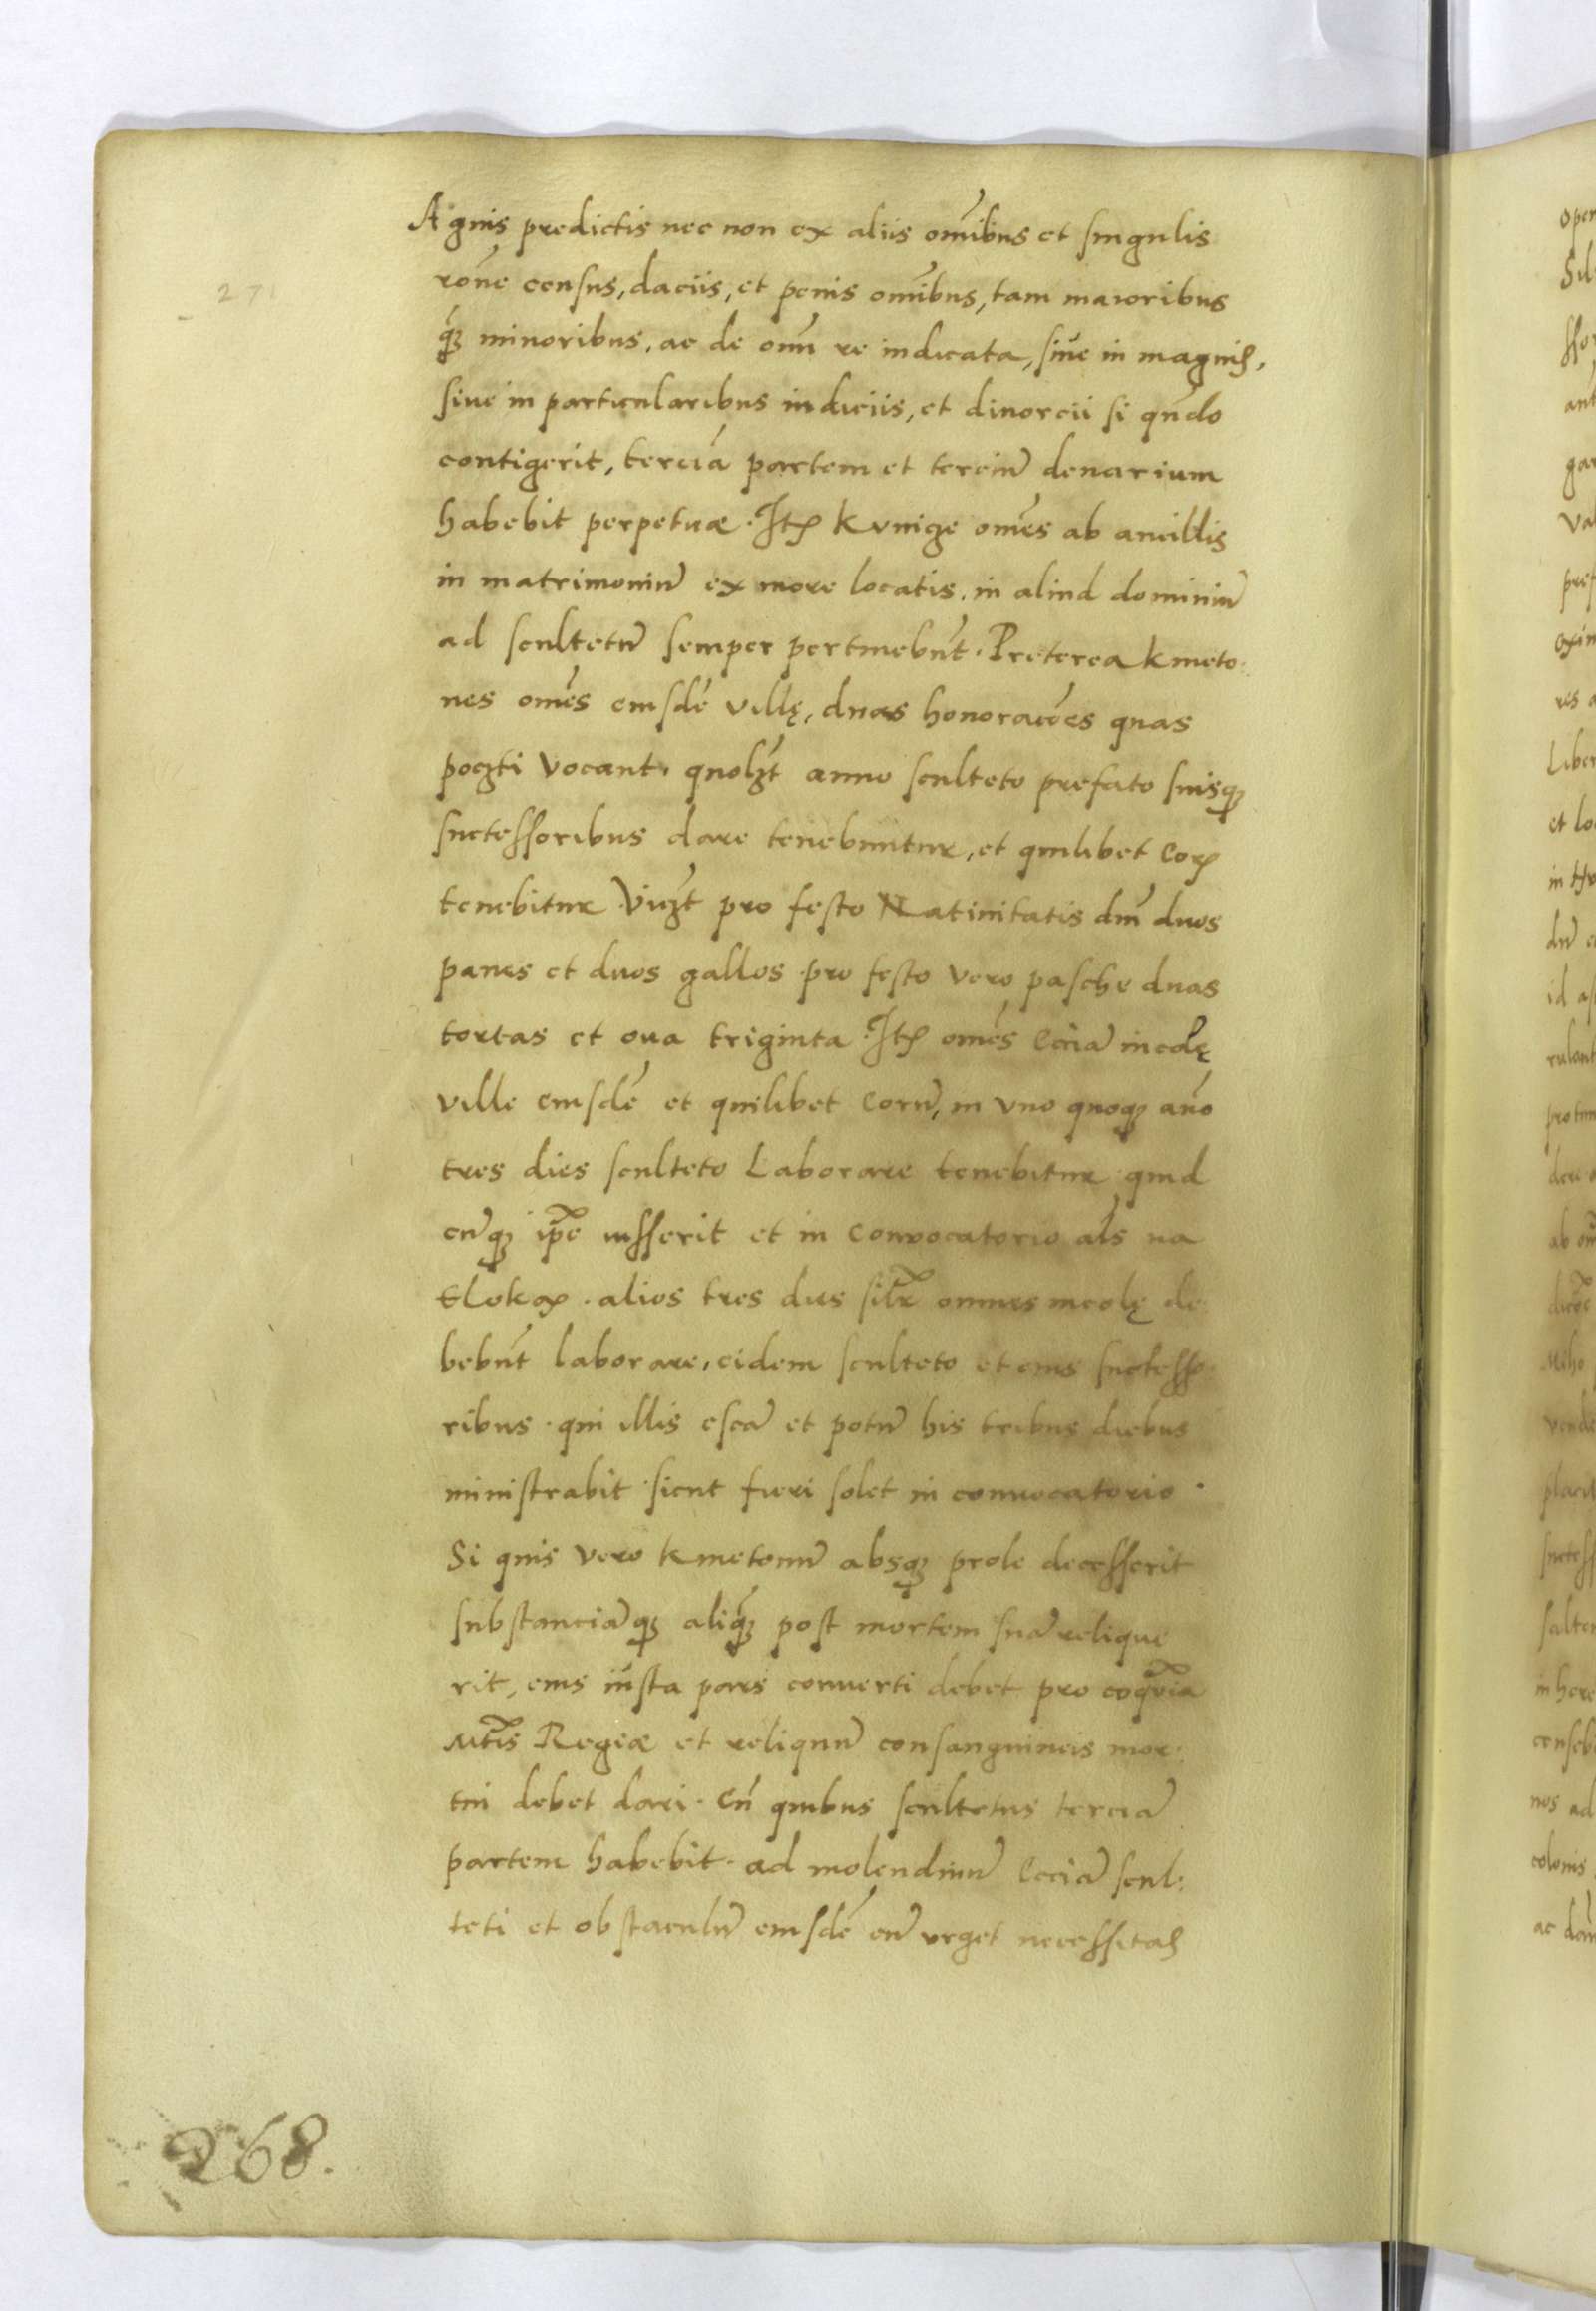 Agnis predictis nec non ex aliis om̃ibus et singulis
rõne census, daciis, et penis om̃ibus, tam maioribus
q̃ꝫ minoribus, ac de om̃i re iudicata, siue in magnis,
siue in particularibus iudiciis, et diuorcii si qñdo
contigerit, terciã partem et terciũ denarium
habebit perpetuæ. Itꝫ kunicze om̃es ab ancillis
in matrimoniũ ex more locatis, in aliud dominiũ
ad scultetũ semper pertinebũt. Preterea kmeto:
nes om̃es eiusdẽ villę, duas honoraciões quas
poczti vocant, quolꝫt anno sculteto prefato suisqꝫ
suctessoribus dare tenebuntur, et quilibet eoꝝ
tenebitur viꝫt pro festo Natiuitatis dñi duos
panes et duos gallos pro festo vero pasche duas
tortas et oua triginta. Itꝫ om̃es eciã incolę
ville eiusdẽ et quilibet eorũ, in vno quoqꝫ año
tres dies sculteto Laborare tenebitur quid
cũqꝫ ip̃e iusserit et in conuocatorio al̃s na
tlokax . alios tres dies sil̃r omnes incolę de:
bebũt laborare, eidem sculteto et eius suctesso:
ribus . qui illis escã et potũ his tribus diebus
ministrabit sicut fieri solet in conuocatorio .
Si quis vero kmetonũ absqꝫ prole decesserit
substanciãqꝫ aliq̃ꝫ post mortem suã relique
rit, eius iusta pars conuerti debet pro coq̃uia
M̃tis Regiæ et reliquũ consanguineis mor:
tui debet dari. Cũ quibus scultetus terciã
partem habebit. ad molendinũ eciã scul:
teti et obstaculũ eiusdẽ cũ vrget necessitas
271
268.